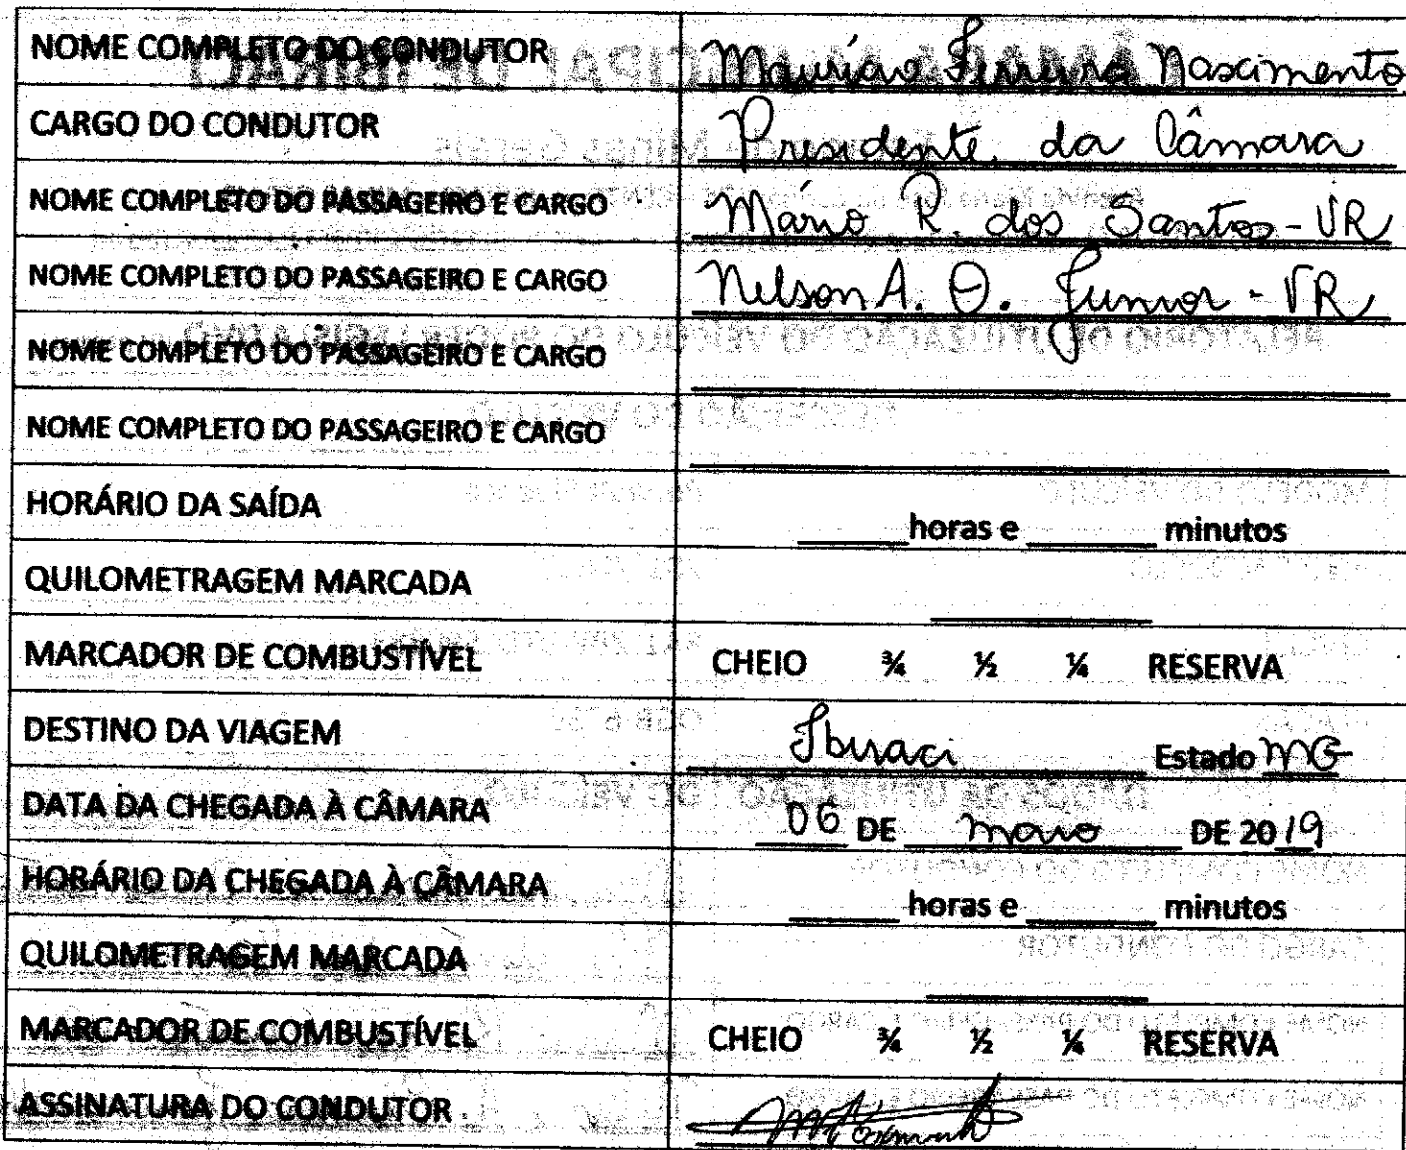 NOME COMPLETO DO CONDUTOR Mauricio Ferreira Nascimento
CARGO DO CONDUTOR Presidente da Câmara
NOME COMPLETO DO PASSAGEIRO E CARGO Mario R. dos Santos - VR
NOME COMPLETO DO PASSAGEIRO E CARGO Nelson A. O. Junior - VR
NOME COMPLETO DO PASSAGEIRO E CARGO
NOME COMPLETO DO PASSAGEIRO E CARGO
HORÁRIO DA SAÍDA ______horas e ______ minutos
QUILOMETRAGEM MARCADA
MARCADOR DE COMBUSTÍVEL CHEIO ¾ ½ ¼ RESERVA
DESTINO DA VIAGEM Ibiraci Estado MG
DATA DA CHEGADA À CÂMARA 06 DE maio DE 2019
HORÁRIO DA CHEGADA À CÂMARA ______ horas e ______ minutos
QUILOMETRAGEM MARCADA
MARCADOR DE COMBUSTÍVEL CHEIO ¾ ½ ¼ RESERVA
ASSINATURA DO CONDUTOR